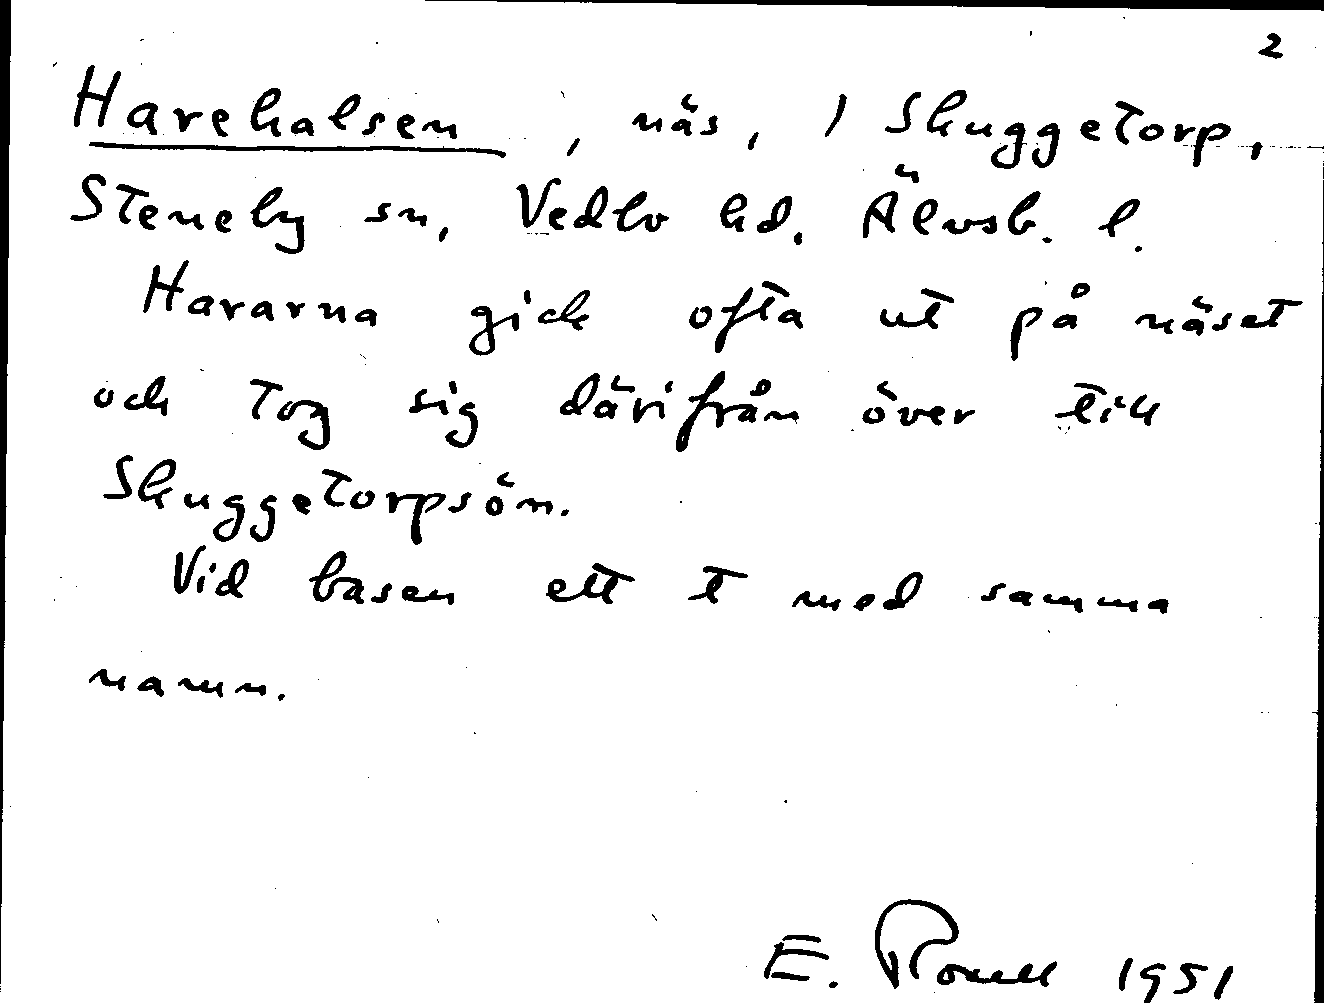 2
Harehalsen, näs, 1 Skuggetorp,
Steneby sn, Vedbo hd. Älvsb. l.
Hararna gick ofta ut på näset
och tog sig därifrån över till
Skuggetorpsön.
Vid basen ett t med samma
namn.
E. 1951